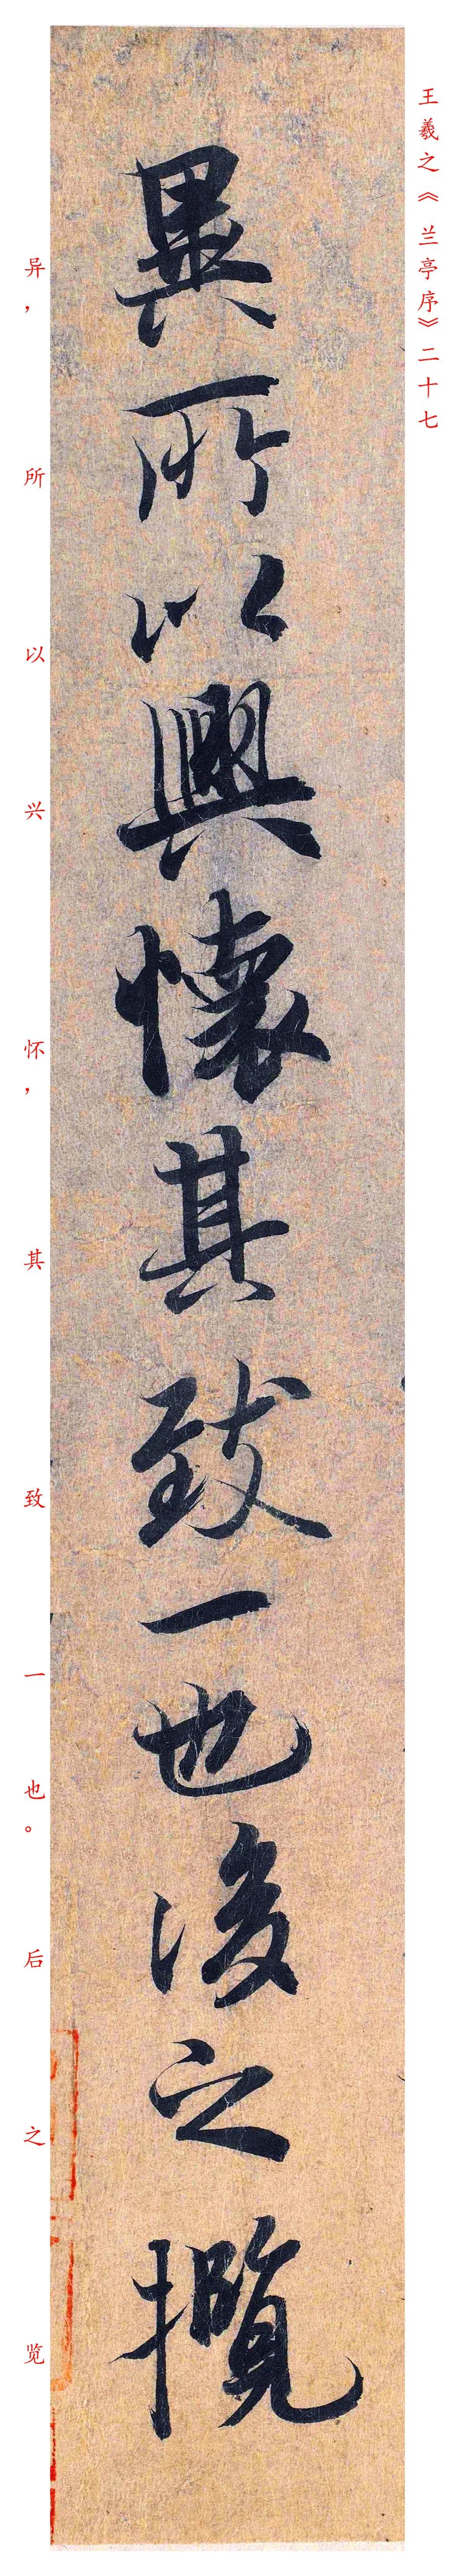 王羲之《兰亭序》二十七
異所以興懷其致一也後之攬
异，所以兴怀，其致一也。后之览